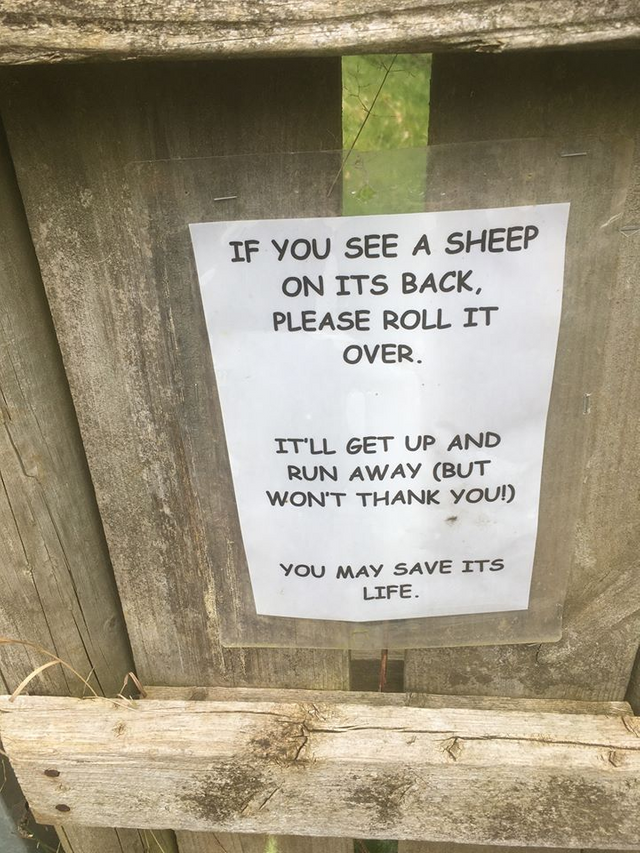 IF YOU SEE A SHEEP
ON ITS BACK,
PLEASE ROLL IT
OVER.
IT'LL GET UP AND
RUN AWAY (BUT
WON'T THANK YOU!)
YOU MAY SAVE ITS
LIFE.